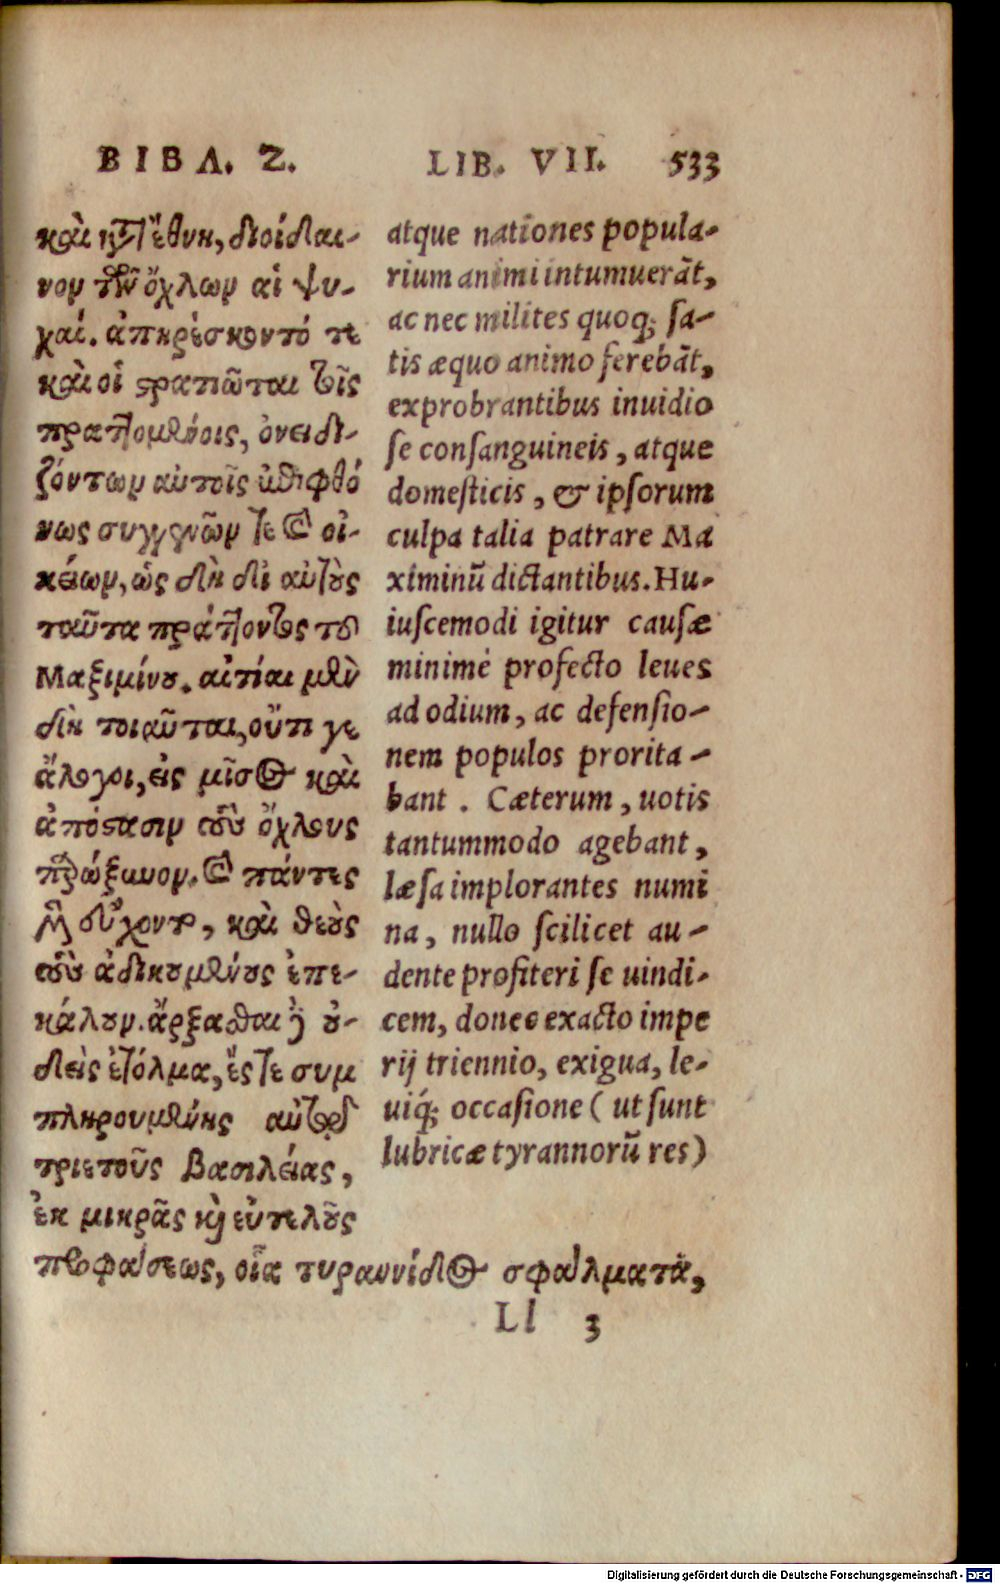 ΒΙΒΛ. Ζ.
LIB. VII. 533
καὶ κατ' ἔθνη, διοίδαι-
νον τῶν ὄχλων αἱ ψυ-
χαί. ἀπηρέσκοντό τε
καὶ οἱ στρατιῶται τοῖς
πραττομένοις, ὀνειδι-
ζόντων αὐτοῖς ἐπιφθό
νως συγγενῶν τε καὶ οἰ-
κείων, ὡς δὴ δι' αὐτοὺς
ταῦτα πράττοντος τοῦ
Μαξιμίνου. αἰτίαι μὲν
δὴ τοιαῦται, οὔτι γε
ἄλογοι, εἰς μῖσος καὶ
ἀπόστασιν τοὺς ὄχλους
παρώξυνον. καὶ πάντες
μὲν εὔχοντο, καὶ θεοὺς
τοὺς ἀδικουμένους ἐπε-
κάλουν. ἄρξασθαι δὲ οὐ-
δεὶς ἐτόλμα, ἔς τε συμ
πληρουμένης αὐτοῦ
τριετοῦς βασιλείας,
ἐκ μικρᾶς καὶ εὐτελοῦς
προφάσεως, οἷα τυραννίδος σφάλματα,
atque nationes popula-
rium animi intumuerāt,
ac nec milites quoq; sa-
tis æquo animo ferebāt,
exprobrantibus inuidio
se consanguineis, atque
domesticis, & ipsorum
culpa talia patrare Ma
ximinū dictantibus. Hu-
iuscemodi igitur causæ
minimè profecto leues
ad odium, ac defensio-
nem populos prorita-
bant. Cæterum, uotis
tantummodo agebant,
læsa implorantes numi
na, nullo scilicet au-
dente profiteri se uindi-
cem, donec exacto impe
rij triennio, exigua, le-
uiq́; occasione (ut sunt
lubricæ tyrannorū res)
Ll 3
Digitalisierung gefördert durch die Deutsche Forschungsgemeinschaft - DFG